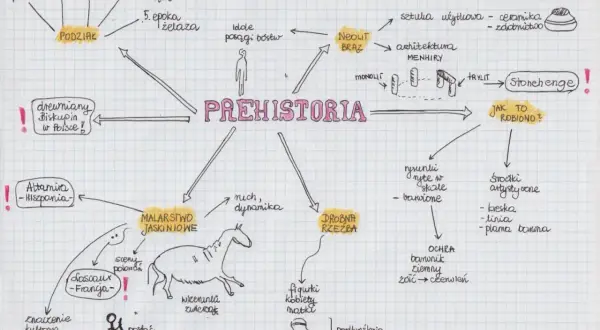 5. epoka
żelaza
PODZIAŁ
idole
posągi bóstw
NEOLIT
BRĄZ
sztuka użytkowa - ceramika
- zdobnictwo
architektura
MENHIRY
MONOLIT
TRYLIT
Stonehenge
!
PREHISTORIA
drewniany
Biskupin
w Polsce !!
!
JAK TO
ROBIONO?
rysunki
ryte w
skale
- barwione
środki
artystyczne
- kreska
- linia
- plama barwna
OCHRA
barwnik
ziemny
żółć → czerwień
!
Altamira
- Hiszpania -
MALARSTWO
JASKINIOWE
ruch,
dynamika
DROBNA
RZEŹBA
sceny
polowań
Lascaux
- Francja -
!
wizerunki
zwierząt
figurki
kobiety
matki
znaczenie